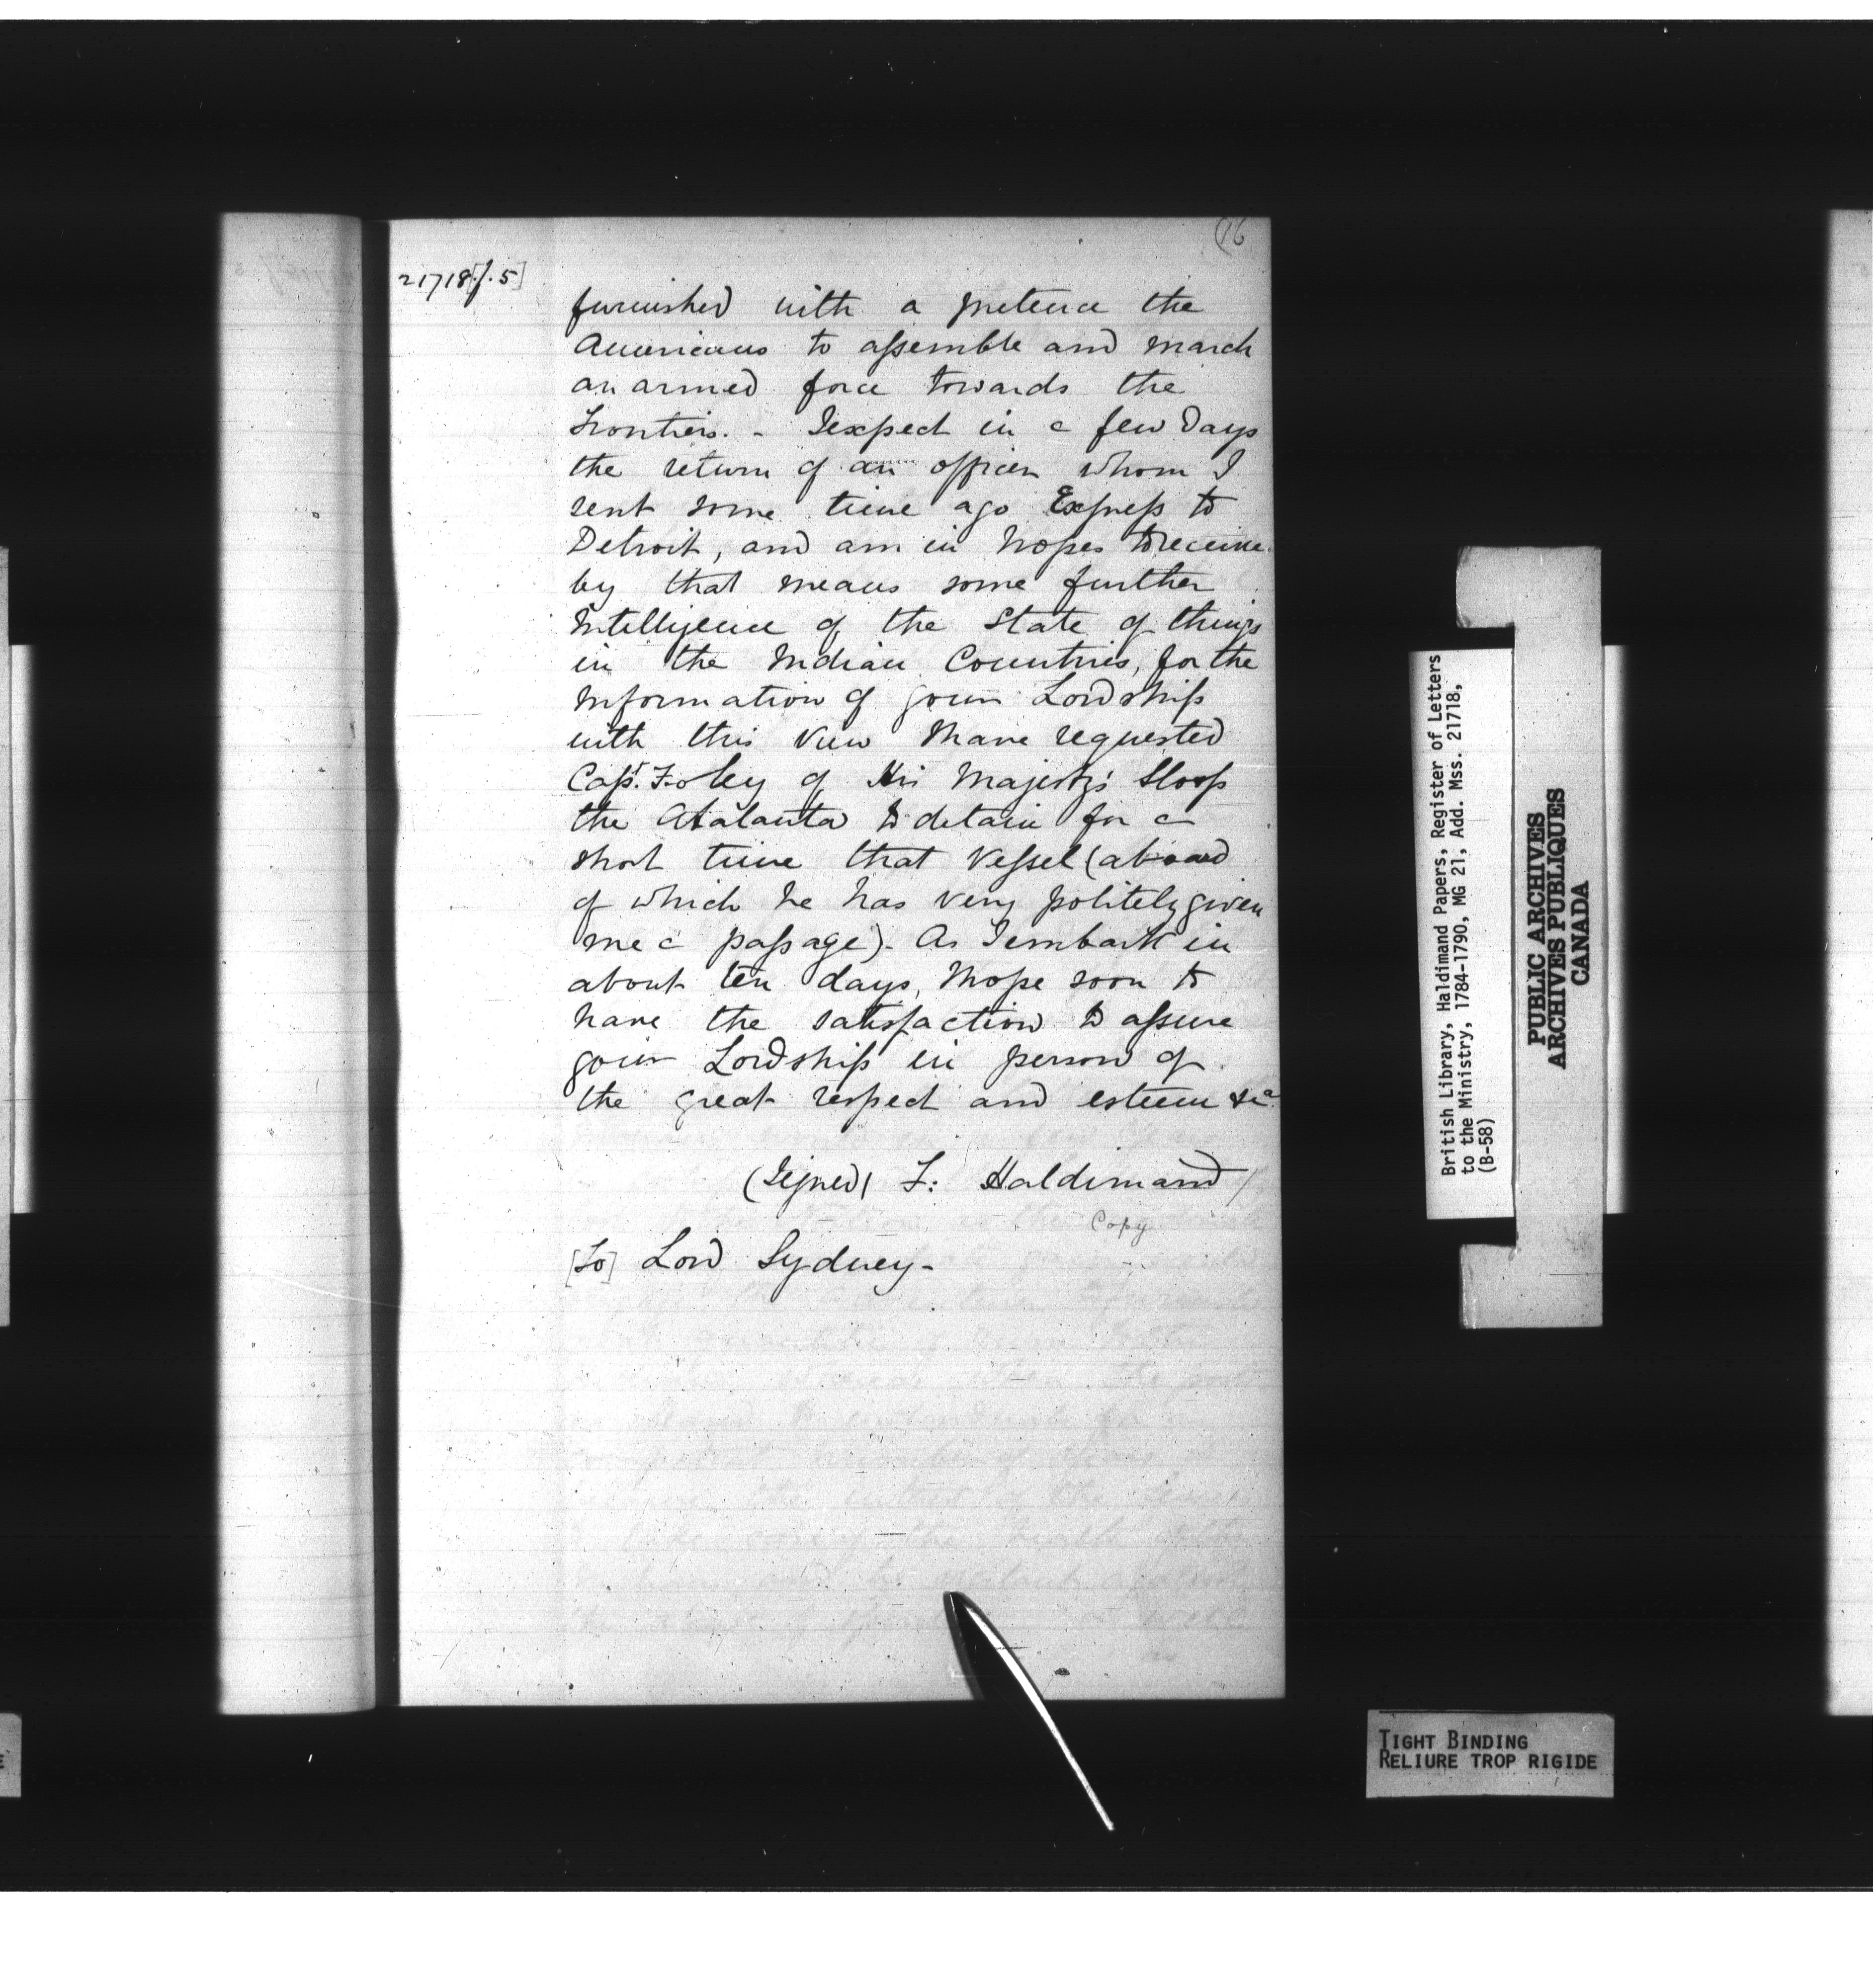 (16
21718[f. 5]
furnished with a pretence the
Americans to assemble and march
an armed force towards the
Frontiers. - I expect in a few Days
the return of an officer whom I
sent some time ago Express to
Detroit, and am in hopes to receive
by that means some further
Intelligence of the State of things
in the Indian Countries, for the
Information of your Lordship
with this View I have requested
Capt. Foley of His Majesty's Sloop
the Atalanta to detain for a
short time that Vessel (aboard
of which he has very politely given
me a passage). As I embark in
about ten days, I hope soon to
have the satisfaction to assure
your Lordship in person of
the great respect and esteem &ca
(Signed) F: Haldimand /
Copy
[To] Lord Sydney -
British Library, Haldimand Papers, Register of Letters
to the Ministry, 1784-1790, MG 21, Add. Mss. 21718,
(B-58)
PUBLIC ARCHIVES
ARCHIVES PUBLIQUES
CANADA
TIGHT BINDING
RELIURE TROP RIGIDE